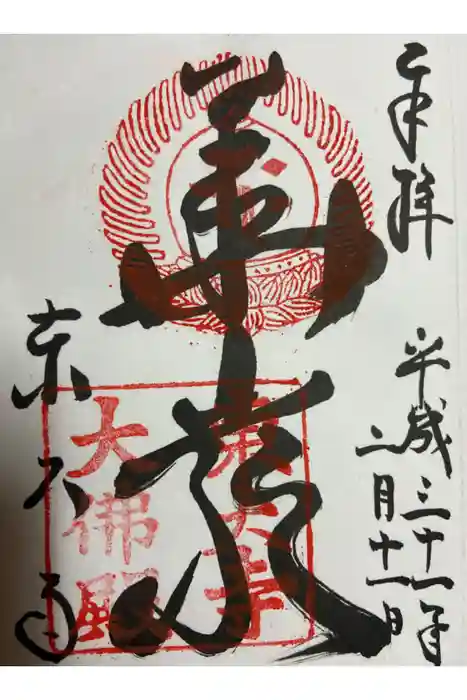 奉拝
平成三十一年
二月十一日
華厳
東大寺
大佛殿
東大寺